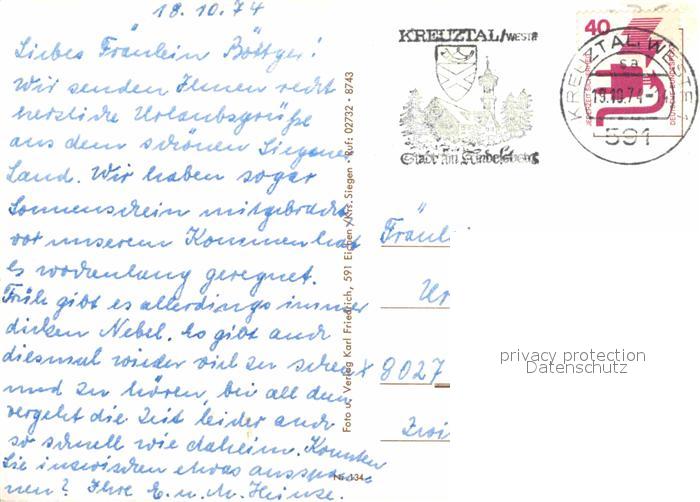 18.10.74
Liebes Fräulein Böttger!
Wir senden Ihnen recht
herzliche Urlaubsgrüße
aus dem schönen Siegener
Land. Wir haben sogar
Sonnenschein mitgebracht
vor unserem Kommen hat
es wochenlang geregnet.
Früh gibt es allerdings immer
dicken Nebel. Es gibt auch
diesmal wieder viel zu sehen
und zu hören, bei all dem
vergeht die Zeit leider auch
so schnell wie daheim. Konnten
Sie inzwischen etwas ausspan-
nen? Ihre E. u. M. Heinze.
Foto u. Verlag Karl Friedrich, 591 Eichen/Krs. Siegen - Ruf: 02732 - 8743
Nr. 134
KREUZTAL/WESTF
Stadt am Kindelsberg
40
JEDERZEIT SICHERHEIT
DEUTSCHE BUNDESPOST
KREUZTAL, WESTF
sa
19.10.74
591
Fräul
8027
privacy protection
Datenschutz